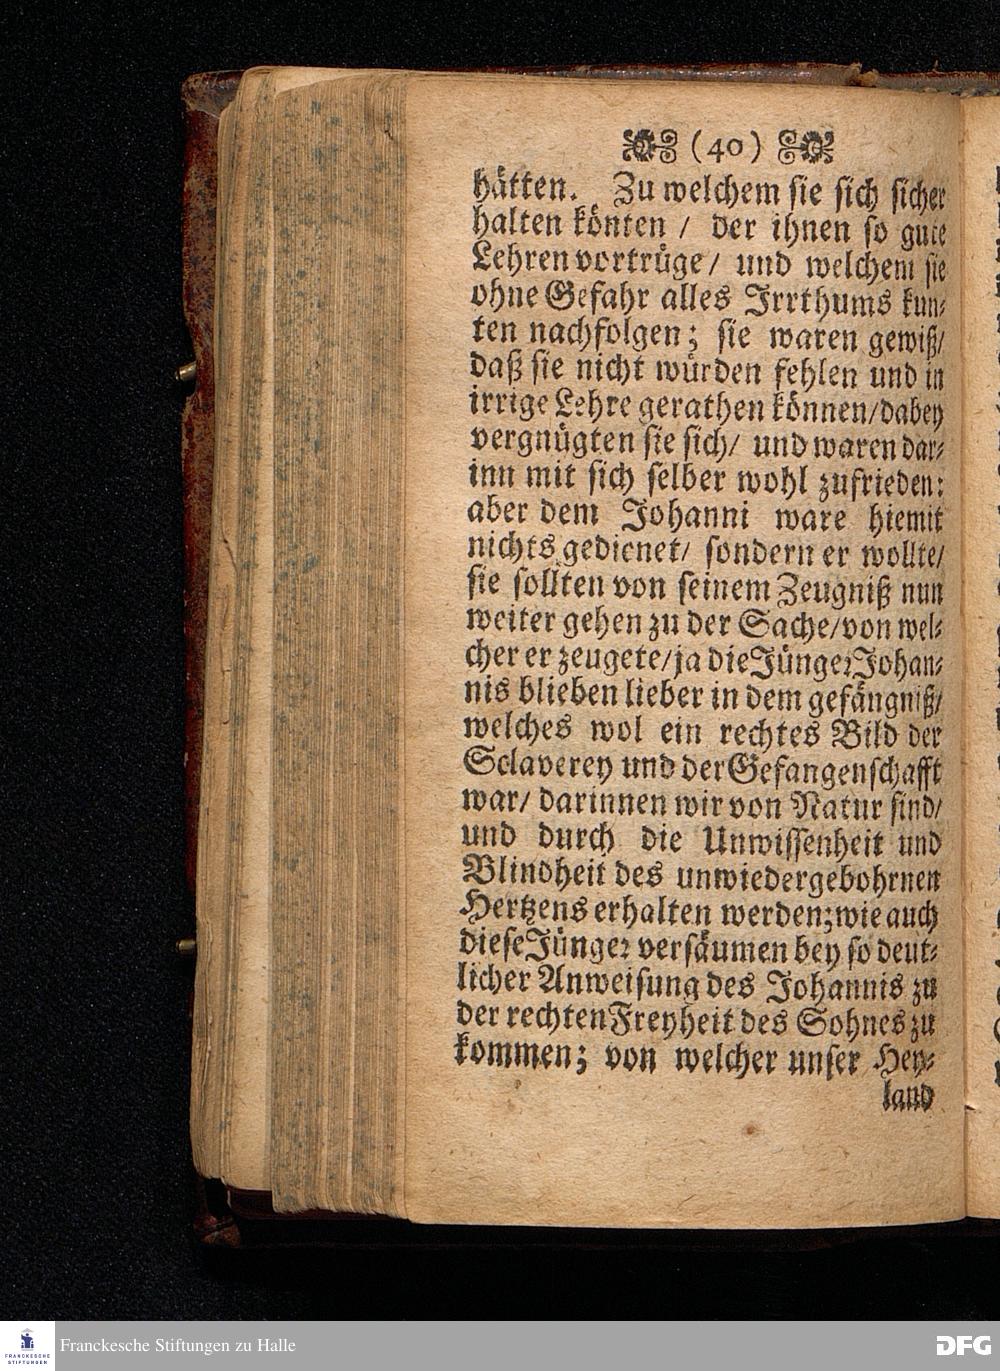 (40)
hätten. Zu welchem sie sich sicher
halten könten / der ihnen so gute
Lehren vortrüge / und welchem sie
ohne Gefahr alles Irrthums kun-
ten nachfolgen; sie waren gewiß /
daß sie nicht würden fehlen und in
irrige Lehre gerathen können / dabey
vergnügten sie sich / und waren dar-
inn mit sich selber wohl zufrieden:
aber dem Johanni ware hiemit
nichts gedienet / sondern er wollte /
sie sollten von seinem Zeugniß nun
weiter gehen zu der Sache / von wel-
cher er zeugete / ja die Jünger Johan-
nis blieben lieber in dem gefängniß /
welches wol ein rechtes Bild der
Sclaverey und der Gefangenschafft
war / darinnen wir von Natur sind /
und durch die Unwissenheit und
Blindheit des unwiedergebohrnen
Hertzens erhalten werden; wie auch
diese Jünger versäumen bey so deut-
licher Anweisung des Johannis zu
der rechten Freyheit des Sohnes zu
kommen; von welcher unser Hey-
land
FRANCKESCHE STIFTUNGEN
Franckesche Stiftungen zu Halle
DFG